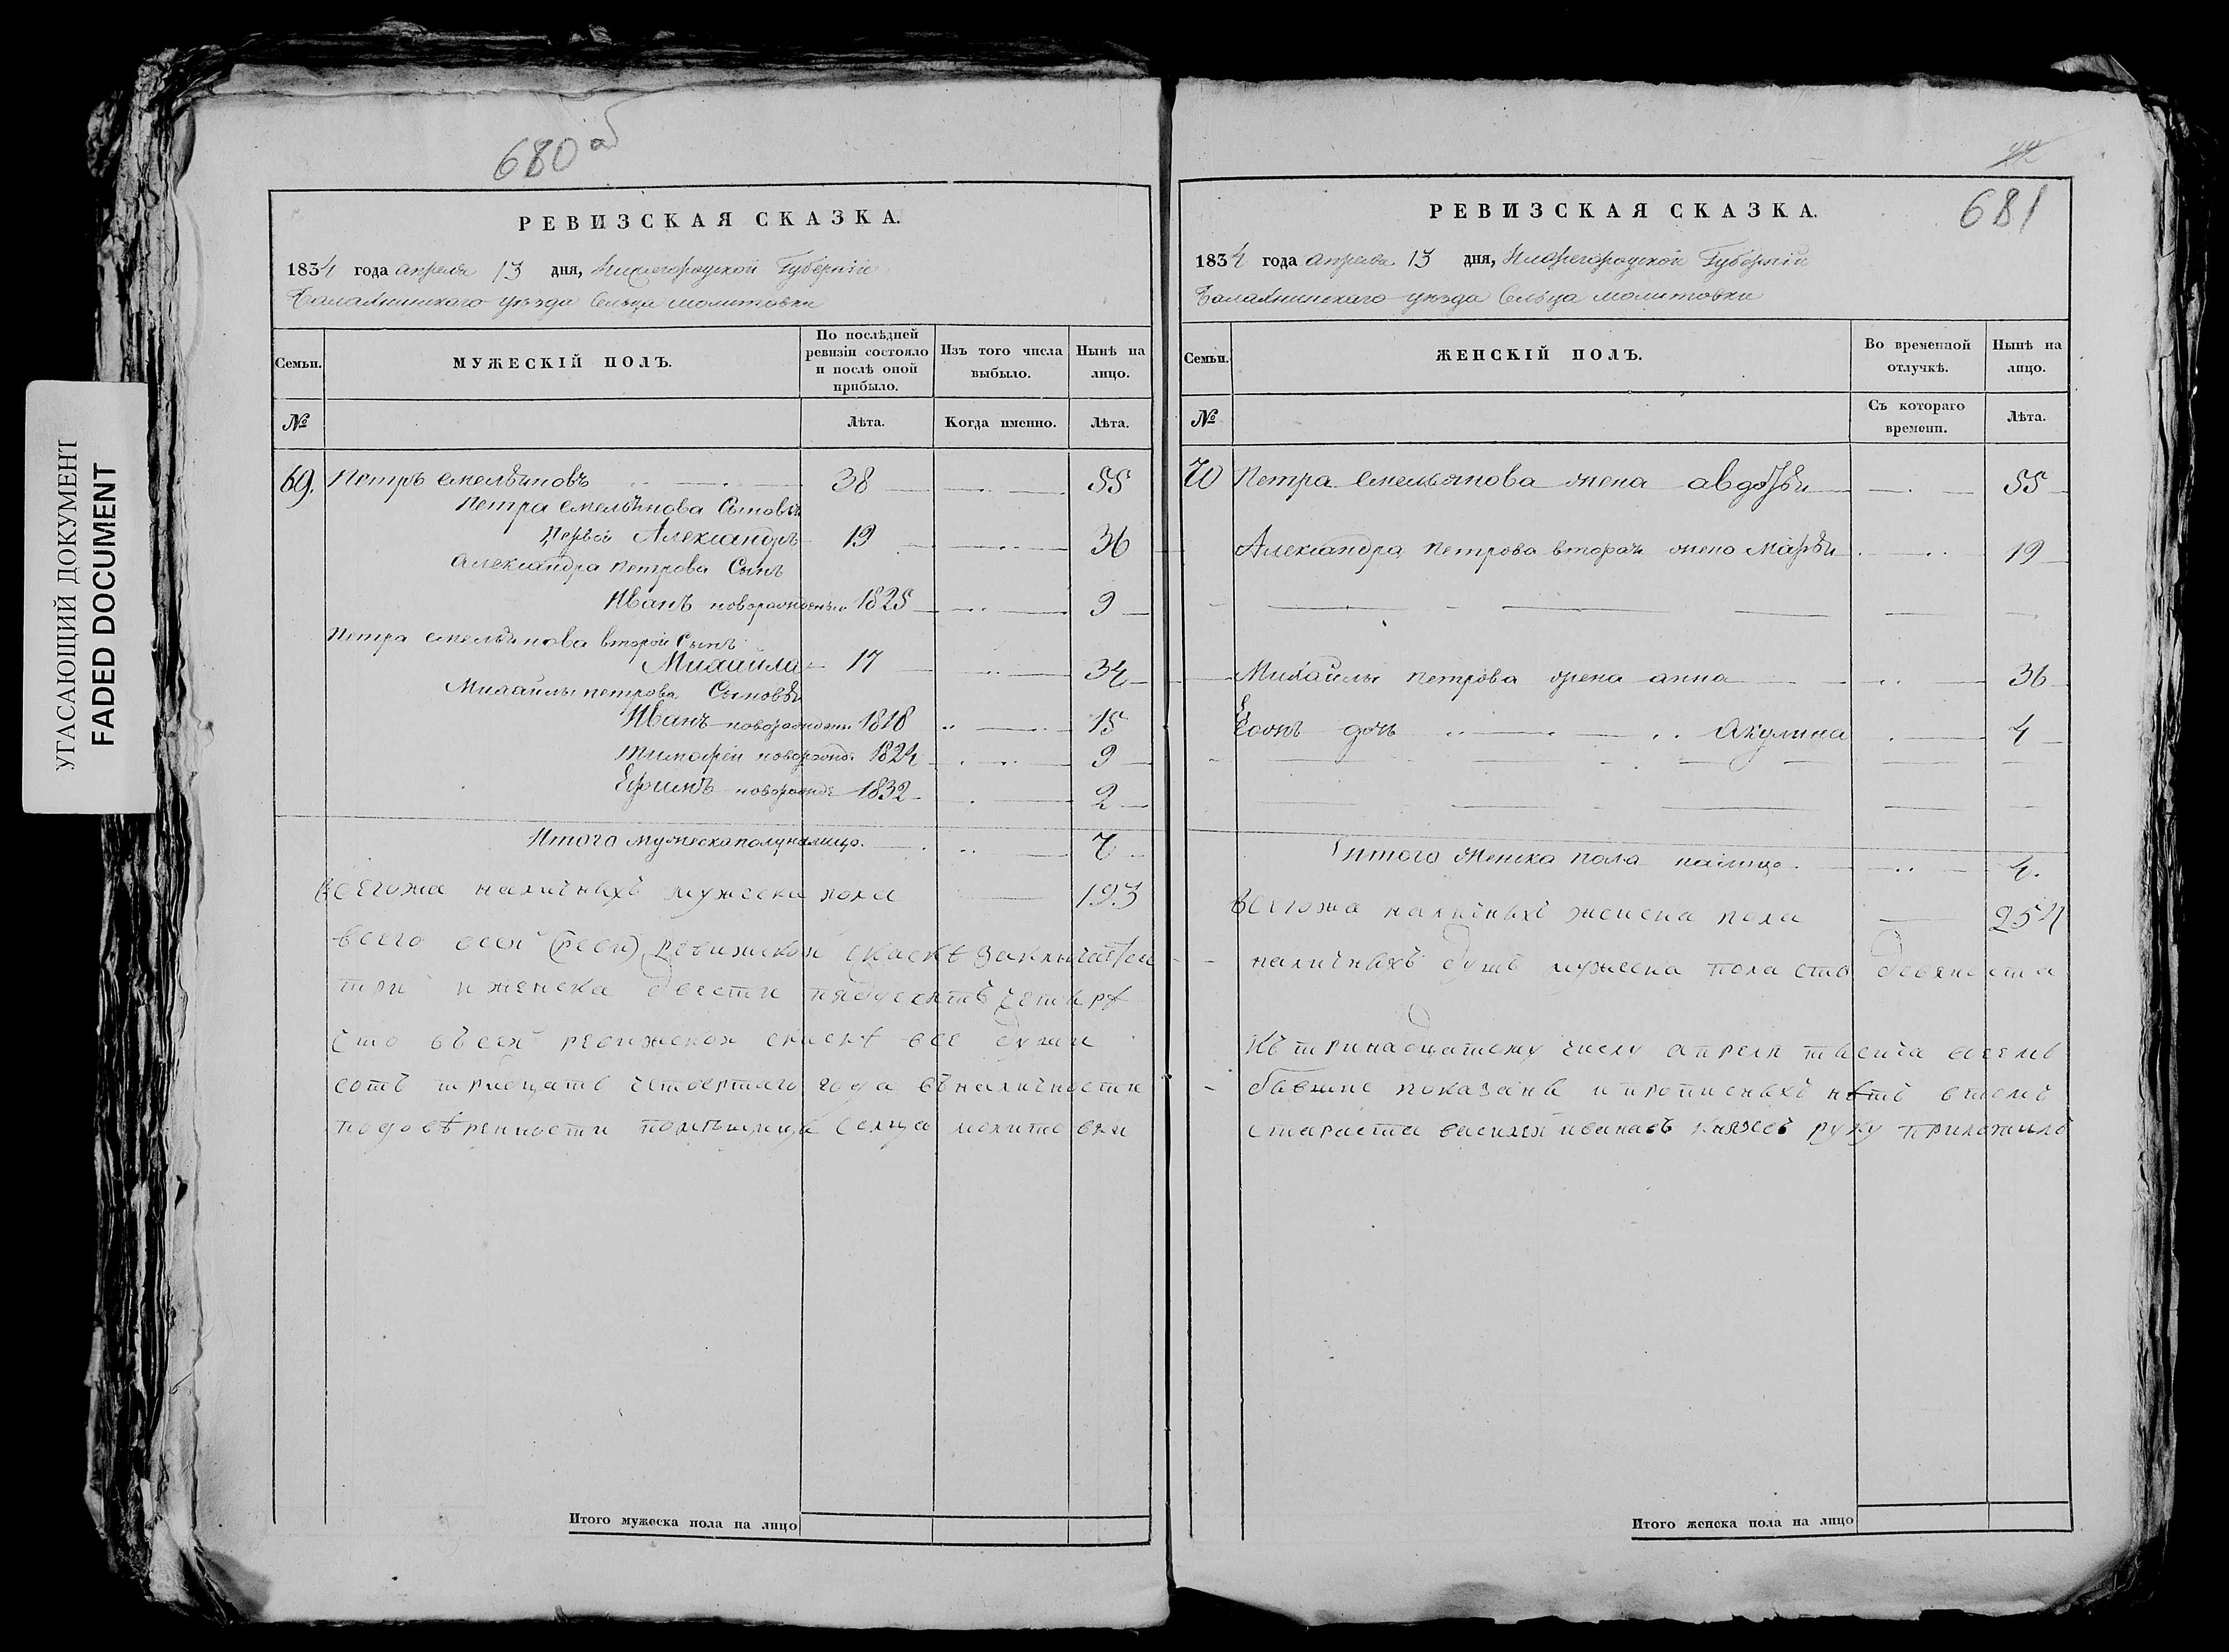 УГАСАЮЩИЙ ДОКУМЕНТ
FADED DOCUMENT
680 об
РЕВИЗСКАЯ СКАЗКА.
1834 года апреля 13 дня, Нижегородской Губерніи
Балахнинского уѣзда Сельца молитовки
Семьи.
МУЖЕСКІЙ ПОЛЪ.
По послѣдней ревизіи состояло и послѣ оной прибыло.
Изъ того числа выбыло.
Нынѣ на лицо.
№
Лѣта.
Когда именно.
Лѣта.
69. Петръ емельяновъ 38 55
Петра емельянова Сыновья
Первой Александръ 19 36
Александра петрова Сынъ
Иванъ новорожденны 1825 9
Петра емельянова второй Сынъ
Михаила 17 34
Михайлы петрова Сыновья
Иванъ новорожден 1818 15
тимофей новорожд. 1824 9
Ефимъ новорожде 1832 2
Итого мужеска полу налицо. 7
Всегожа наличныхъ мужска пола 193
всего всей (сеи) ревижской скаскѣ заключаетса
три и женска двести пядесятъ четырѣ
что въсей ревижской скаскѣ все души
сотъ тридцать четвертаго года въналичности
подовѣренности помѣщицы селца молитовки
42
681
РЕВИЗСКАЯ СКАЗКА.
1834 года апреля 13 дня, Нижегородской Губерніи
Балахнинского уѣзда Сельца молитовки
Семьи.
ЖЕНСКІЙ ПОЛЪ.
Во временной отлучкѣ.
Нынѣ на лицо.
№
Съ котораго времени.
Лѣта.
70 Петра емельянова жена авдотья 55
Александра петрова вторая жена Марья 19
Михайлы петрова жена анна 36
Еѣ дочь Акулина 4
Итого Женска пола налицо. 4.
Всегожа наличныхъ женска пола 254
наличныхъ душъ мужеска пола сто девяноста
Къ тринадцатому числу апреля тысяча восемь
бывшие показаны и прописныхъ нѣтъ втомъ
стараста василей иванавъ князевъ руку приложилъ
Итого мужеска пола на лицо
Итого женска пола на лицо